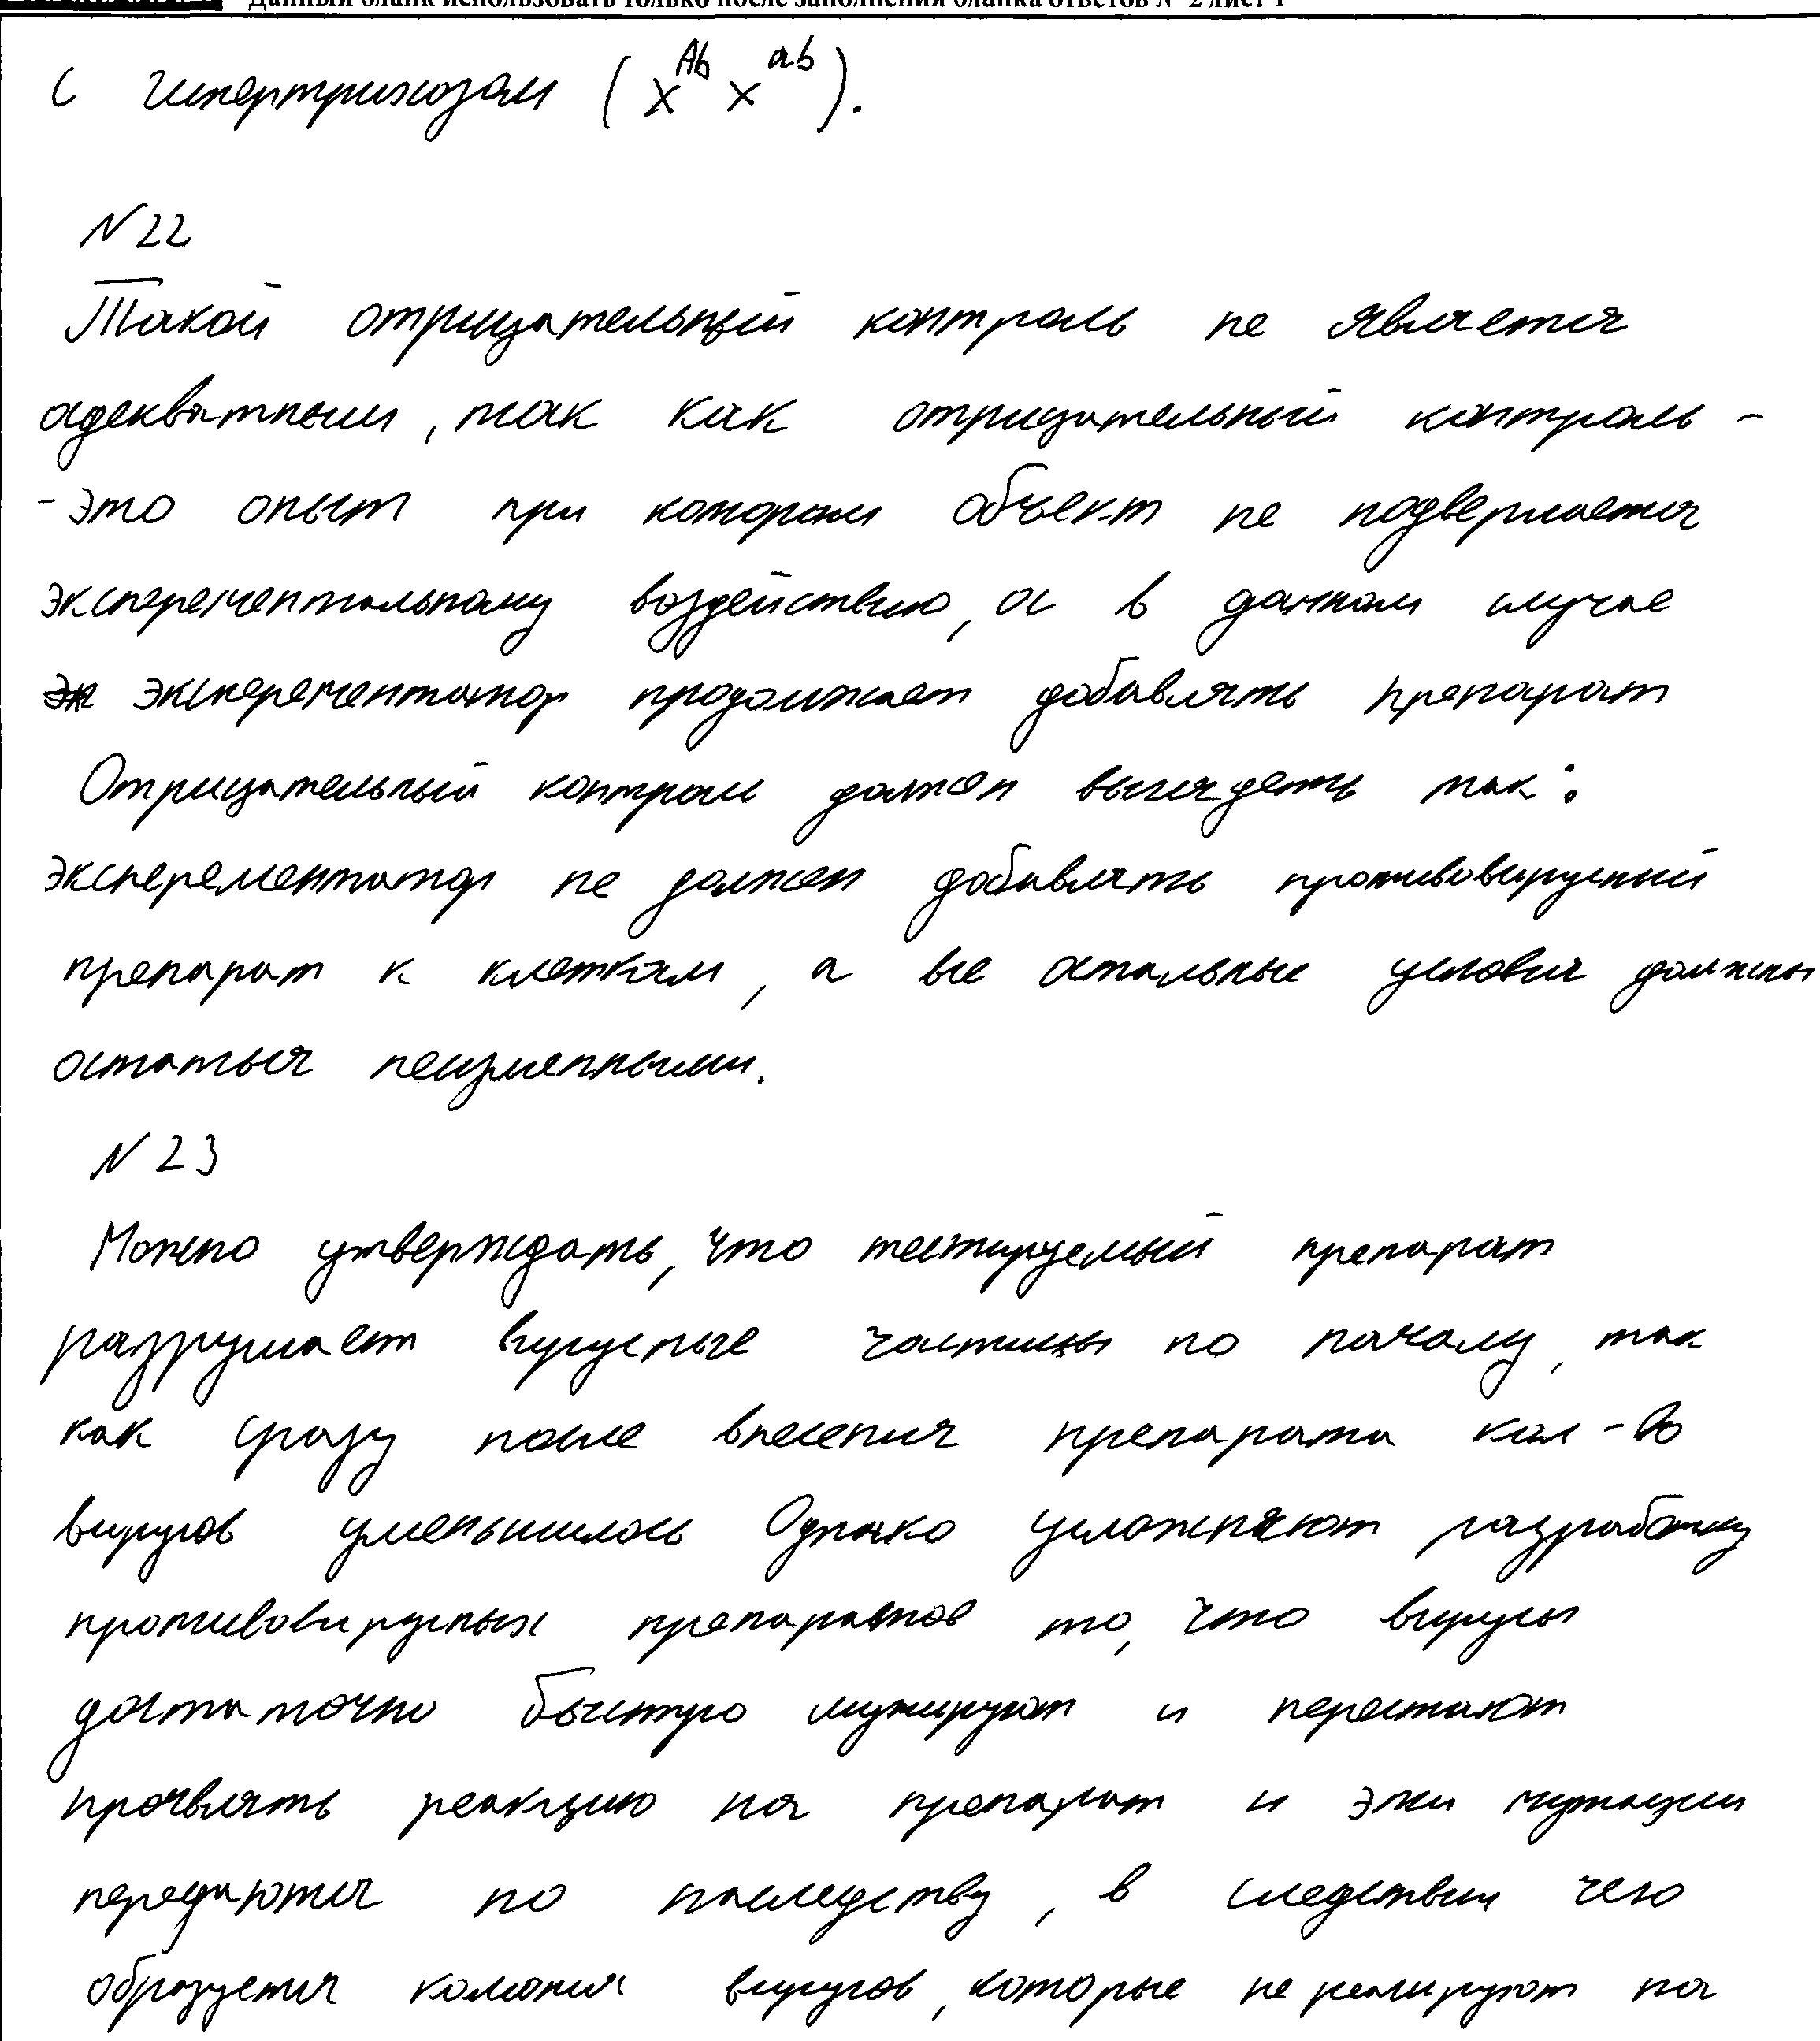 Данный бланк использовать только после заполнения бланка ответов № 2 лист 1
с гипертрихозом (X^Ab X^ab).
N 22
Такой отрицательный контроль не является
адекватным, так как отрицательный контроль -
- это опыт при котором объект не подвергается
эксперементальному воздействию, а в данном случае
эксперементатор продолжает добавлять препарат
Отрицательный контроль должен выглядеть так:
эксперементатор не должен добавлять противовирусный
препарат к клеткам, а все остальные условия должны
остаться неизменными.
N 23
Можно утверждать, что тестируемый препарат
разрушает вирусные частицы по началу, так
как сразу после внесения препарата кол-во
вирусов уменьшилось Однако усложняют разработку
противовирусных препаратов то, что вирусы
достаточно быстро мутируют и перестают
проявлять реакцию на препарат и эти мутации
передаются по наследству, в следствии чего
образуется колония вирусов, которые не реагируют на